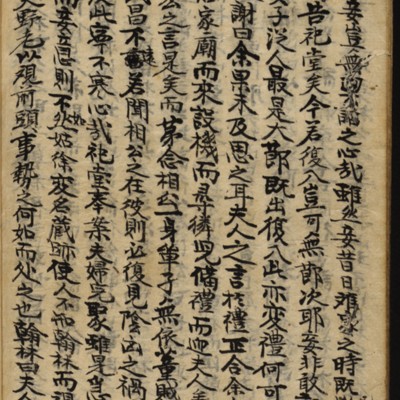 妾豈無之心哉雖然妾昔日難家之時既
告祀堂矣今若復入豈可無節次耶妾非敢
女子從人最是大節既出復入此亦變禮何可
謝曰余果未及思之耳夫人之言於禮正合余
家廟而來設機而尋獜児備禮而迎夫人
公之言是矣而第念相公一身單子無依董賊
昌不遠若聞相公之在彼則必復見陰凶之禍
此寧不寒心哉祀堂奉夫婦完聚雖是當
而妾之意則不然姑徐変名蔵跡使人不知翰林而視
野老以視前頭事勢之何如而處之也翰林曰夫人